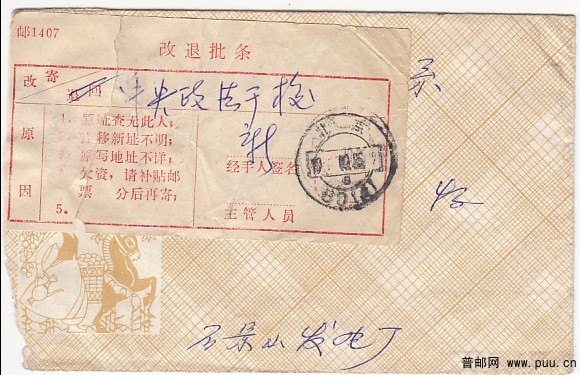 邮1407
改退批条
改 寄
退回 中央政法干校
原
因
1. 原址查无此人;
2. 迁移新址不明;
3. 原写地址不详;
4. 欠资,请补贴邮
票 分后再寄;
5.
经手人签名
主管人员
北京
石景山发电厂
普邮网 www.puu.cn